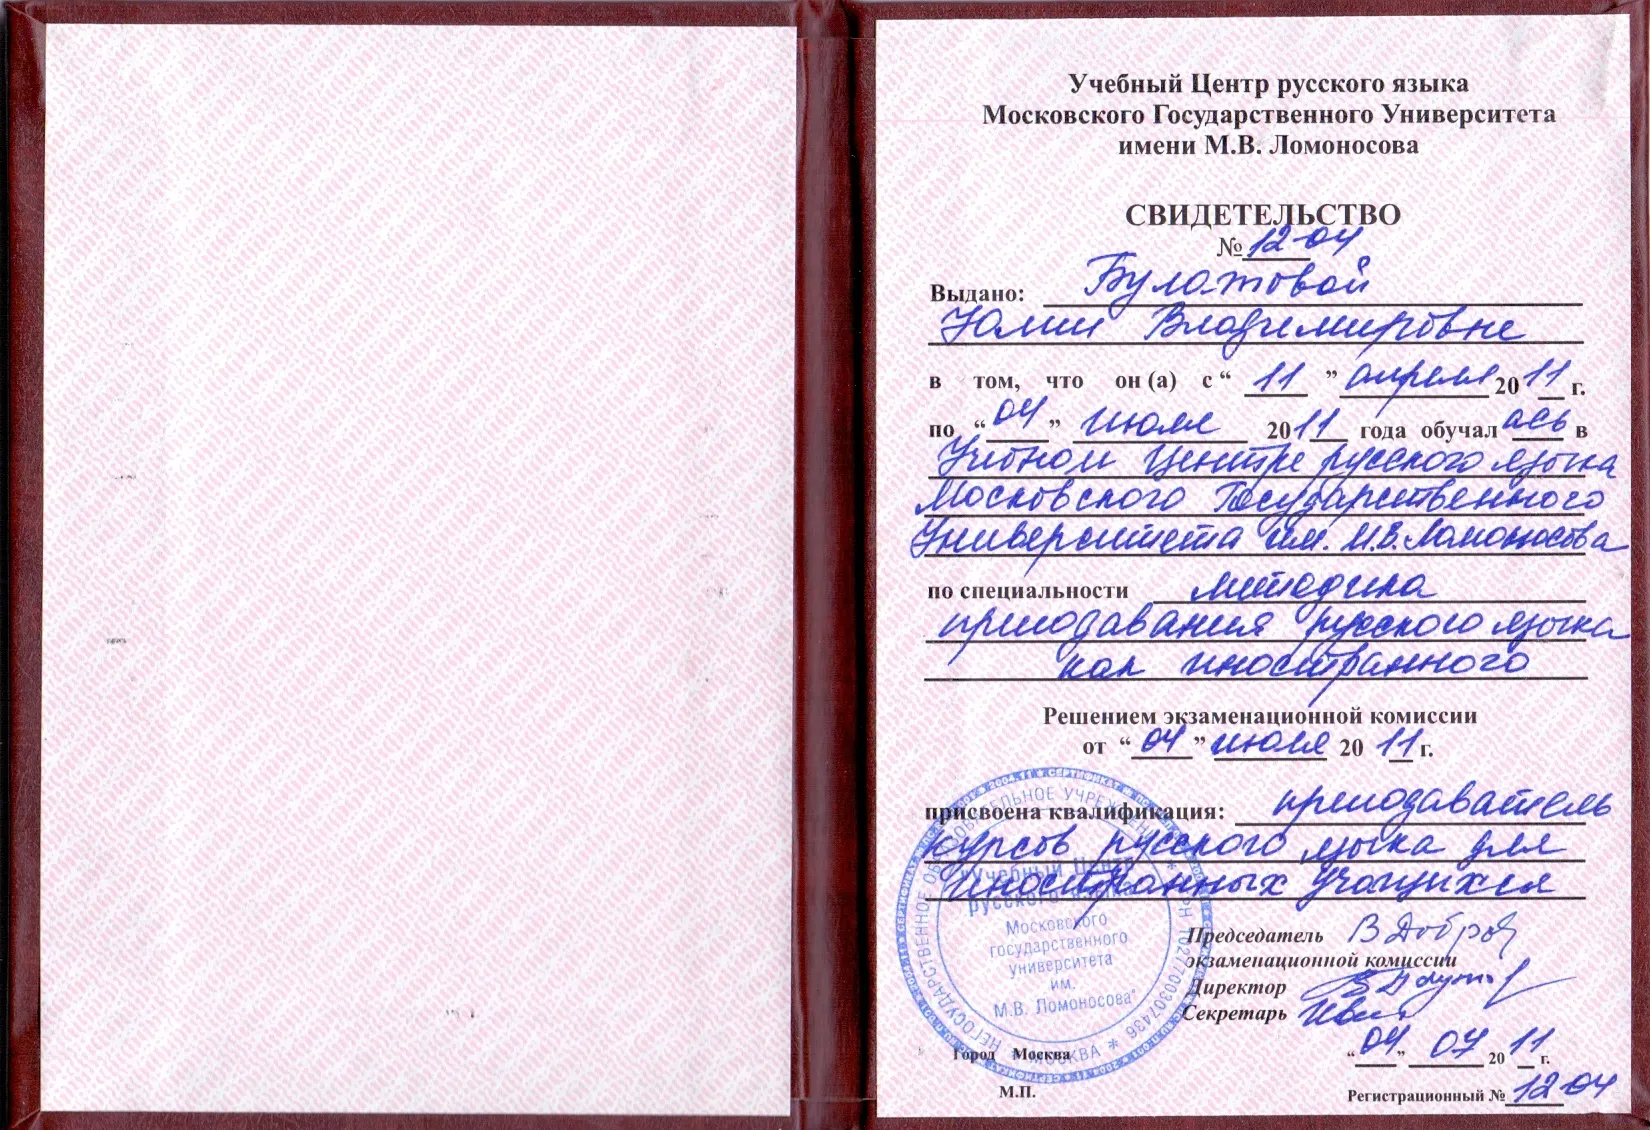 Учебный Центр русского языка
Московского Государственного Университета
имени М.В. Ломоносова
СВИДЕТЕЛЬСТВО
№ 12-04
Выдано: Булатовой
Юлии Владимировне
в том, что он (а) с “ 11 ” апреля 20 11 г.
по “ 04 ” июля 20 11 года обучал ась в
Учебном Центре русского языка
Московского Государственного
Университета им. М.В. Ломоносова
по специальности методика
преподавания русского языка
как иностранного
Решением экзаменационной комиссии
от “ 04 ” июля 20 11 г.
присвоена квалификация: преподаватель
курсов русского языка для
иностранных учащихся
Председатель
экзаменационной комиссии
Директор
Секретарь
Город Москва “ 04 ” 07 20 11 г.
М.П.
Регистрационный № 12-04
НЕГОСУДАРСТВЕННОЕ ОБРАЗОВАТЕЛЬНОЕ УЧРЕЖДЕНИЕ
ОГРН 1027700307436
МОСКВА
"Учебный Центр
русского языка
Московского
государственного
университета
им.
М.В. Ломоносова"